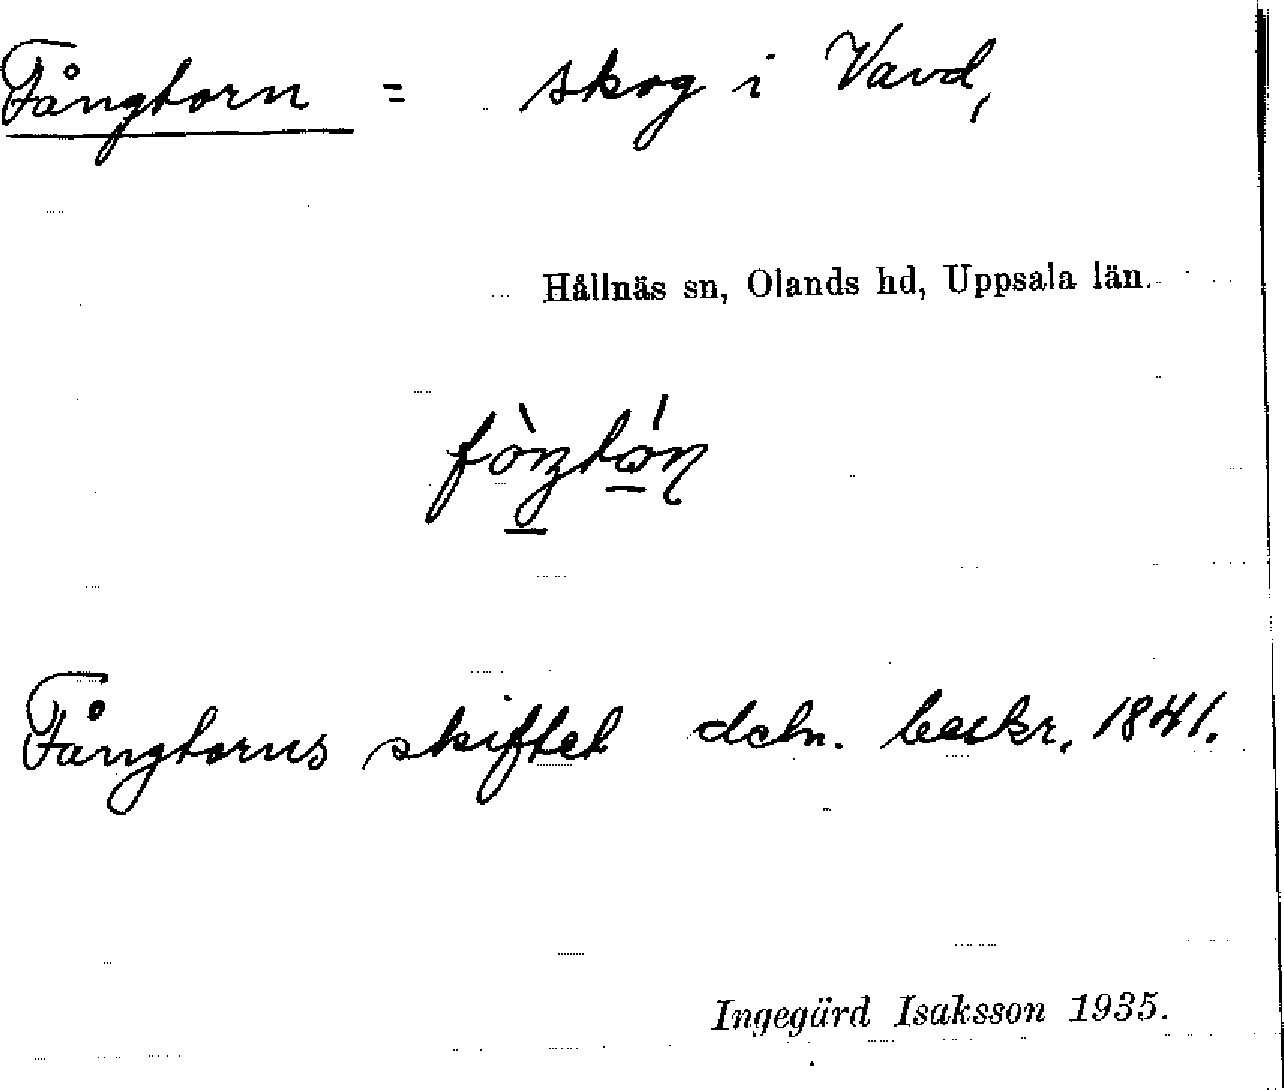 Fångtorn = skog i Vavd,
Hållnäs sn, Olands hd, Uppsala län.
Fångtorns skiftet dchn. beskr. 1841.
Ingegärd Isaksson 1935.